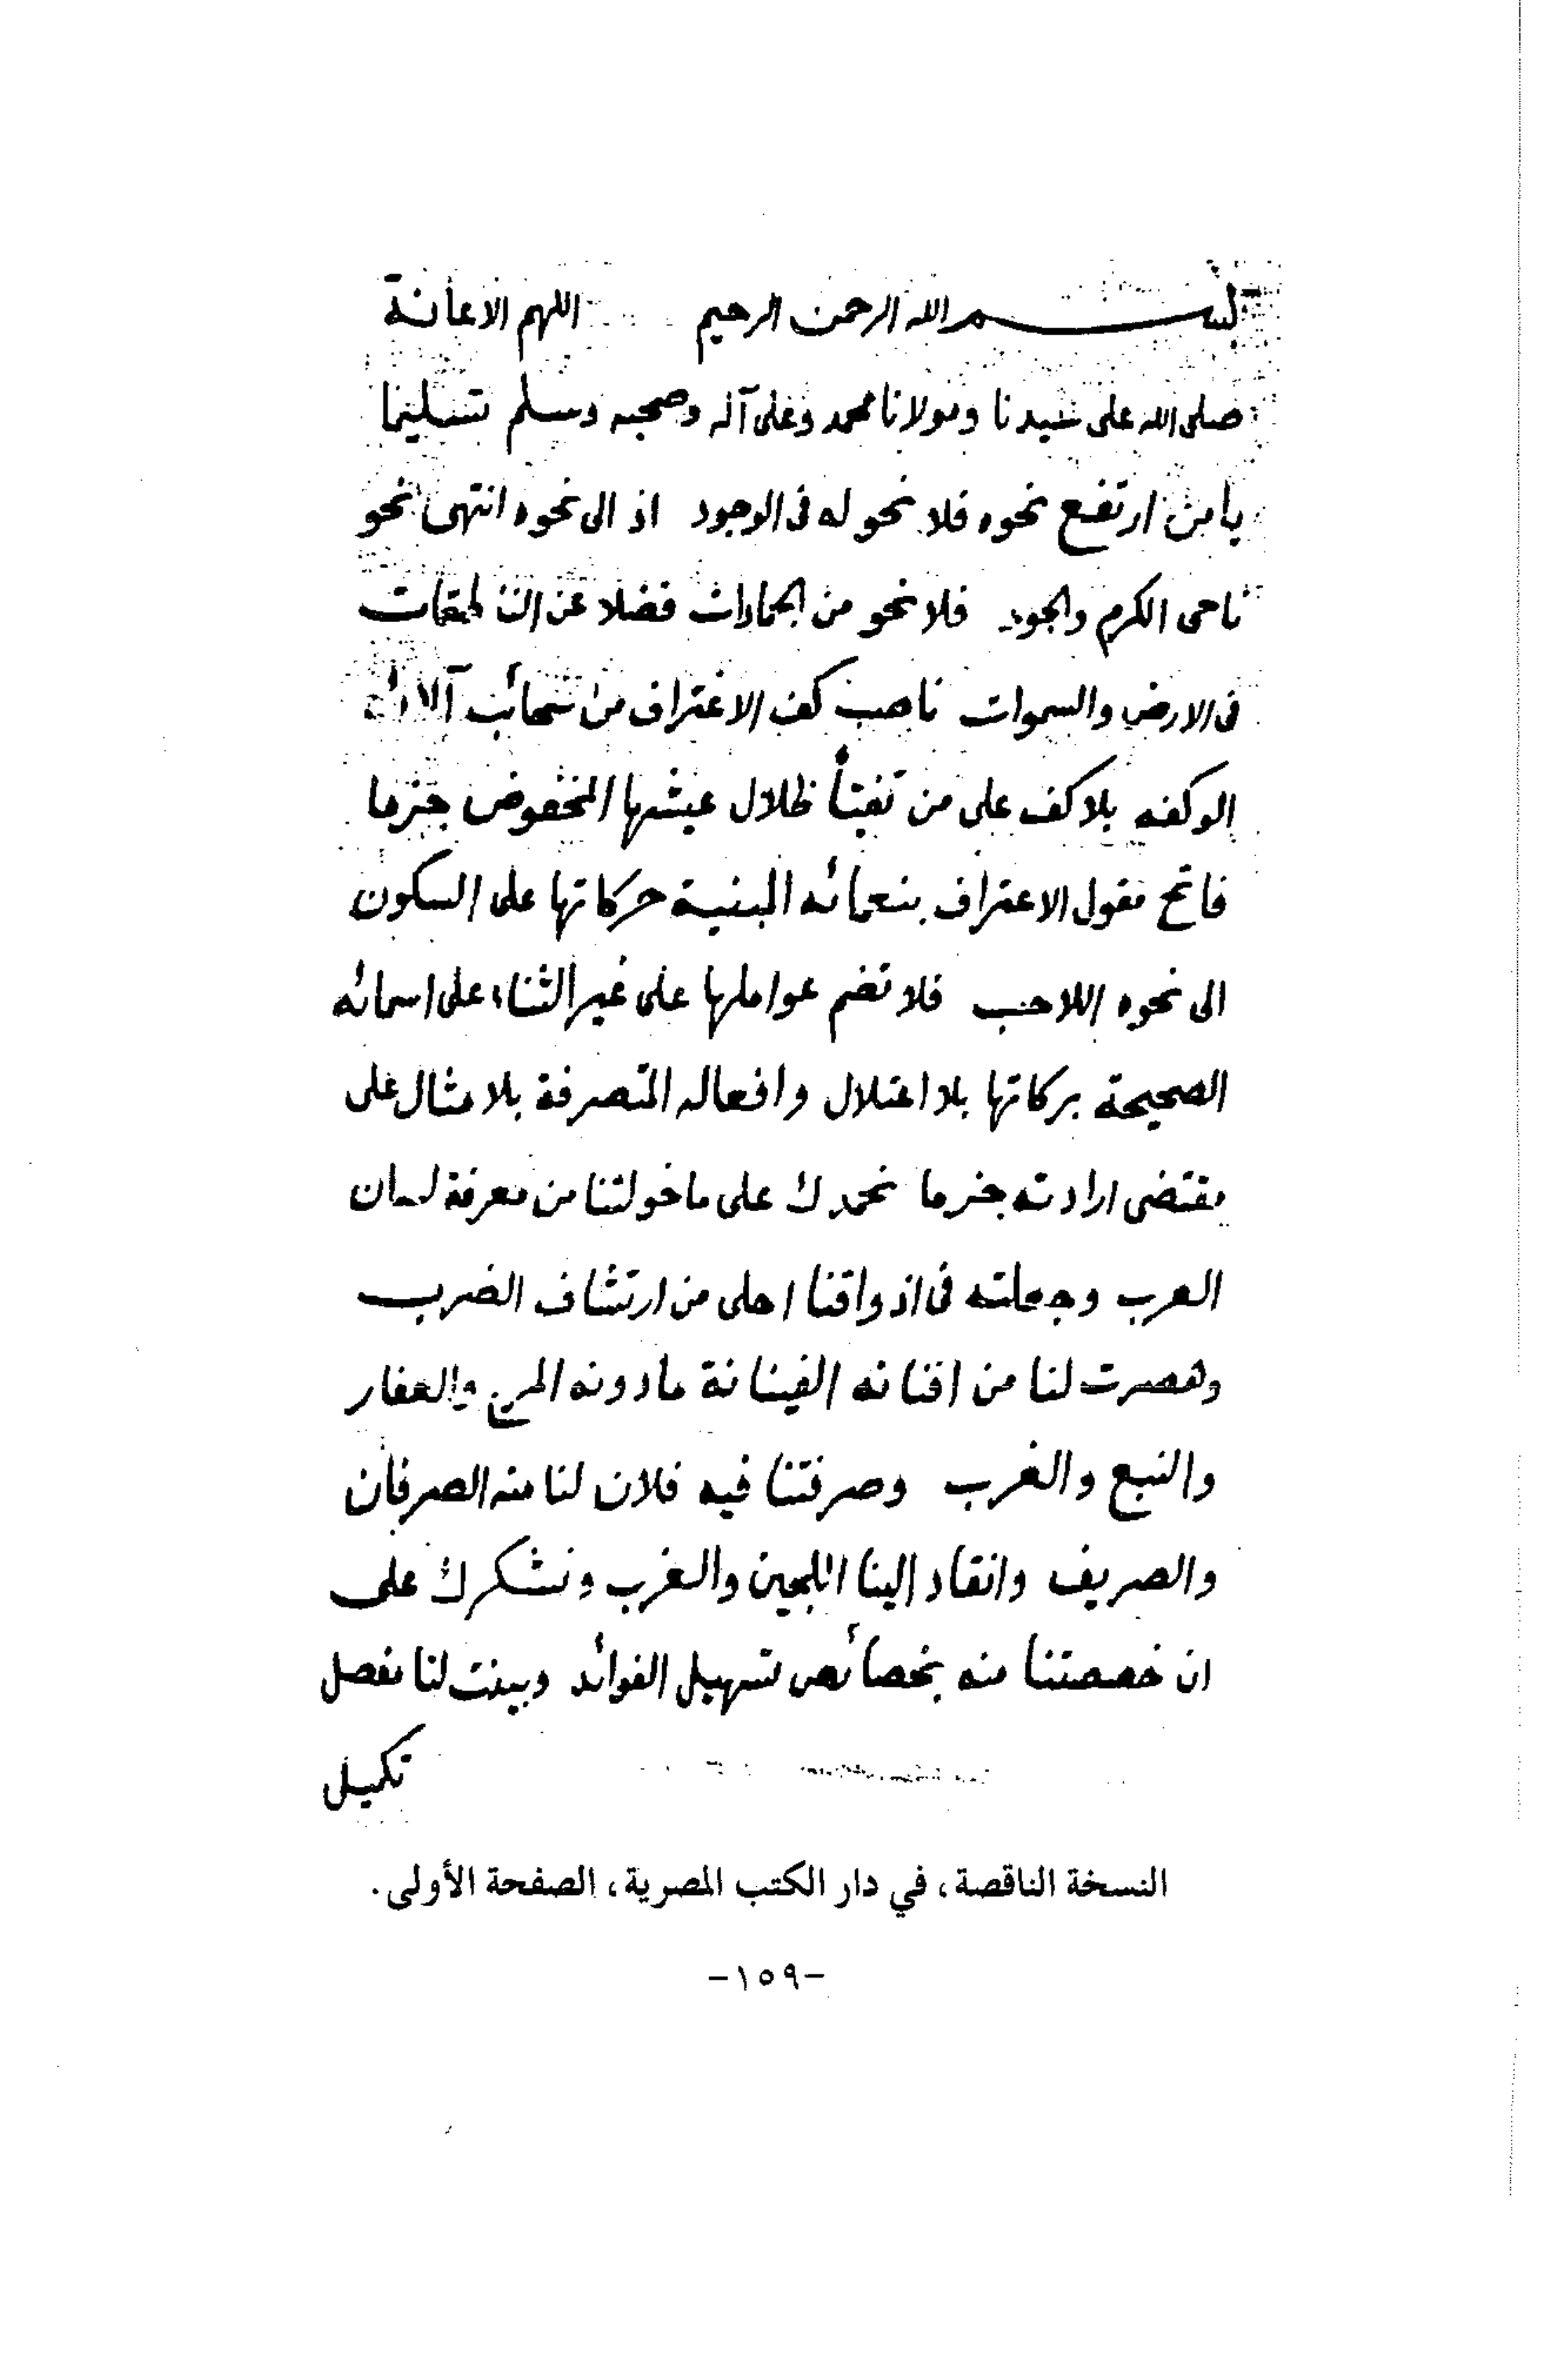 بسم الله الرحمن الرحيم اللهم الاعانة
صلى الله على سيدنا ومولانا محمد وعلى آله وصحبه وسلم تسليما
يا من ارتفع نحوه فلا نحو له فى الوجود اذ الى نحوه انتهى نحو
ناحى الكرم والجود فلا نحو من الجمادات فضلا عن الناطقات
فى الارض والسموات ناصب كف الاغتراف من سحائب آلائه
الوكفه بلا كف على من تفيأ ظلال عيشها المخفوض جزما
فاتح مقول الاعتراف بنعمائه المبنية حركاتها على السكون
الى نحوه اللاحب فلا تضم عواملها على غير الثناء على اسمائه
الصحيحة بركاتها بلا اعتلال وافعاله المتصرفة بلا مثال على
مقتضى ارادته جزما نحمدك على ما خولتنا من معرفة لسان
العرب وجعلته فى اذواقنا احلى من ارتشاف الضرب
وهصرت لنا من افنانه الفينانة ما دونه المرخ والعفار
والنبع والغرب وصرفتنا فيه فلان لنا منه الصرفان
والصريف وانقاد إلينا اللجين والغرب ونشكرك على
ان خصصتنا منه بخصائص تسهيل الفوائد وبينت لنا مفصل
تكميل
النسخة الناقصة، في دار الكتب المصرية، الصفحة الأولى.
-١٥٩-